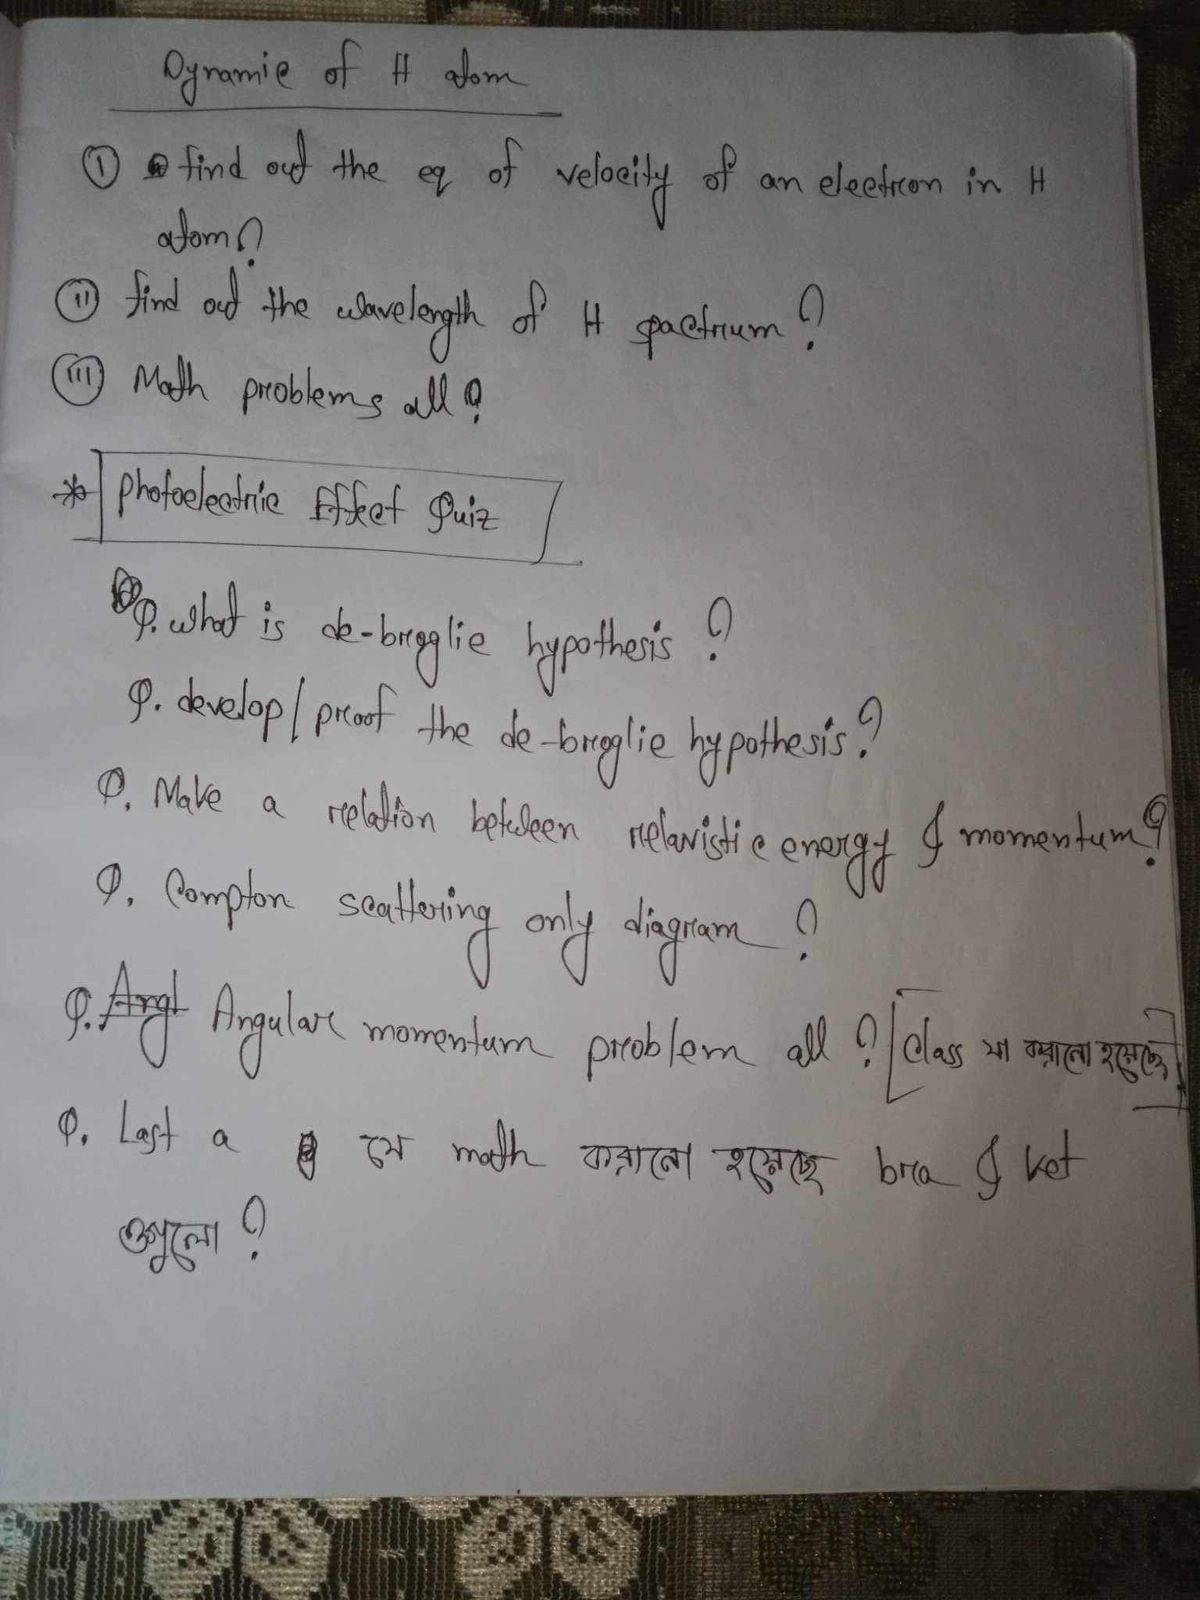 Dynamic of H atom
(I) find out the eq of velocity of an electron in H
atom?
(II) find out the wavelength of H spactrum?
(III) Math problems all?
* Photoelectric Effect Quiz
Q. what is de-broglie hypothesis?
Q. develop/proof the de-broglie hypothesis?
Q. Make a relation between relavistic energy & momentum?
Q. Compton scattering only diagram?
Q. Angular momentum problem all? [Class যা করানো হয়েছে]
Q. Last a যে math করানো হয়েছে bra & ket
ওগুলো?